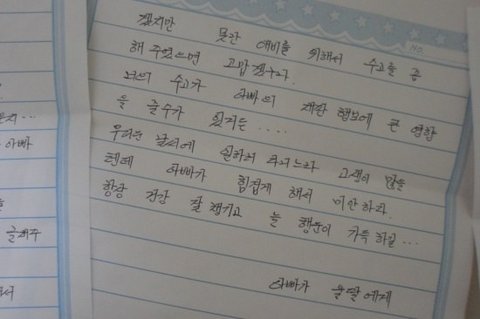 NO.
겠지만 못난 애비를 위해서 수고를 좀
해 주었으면 고맙겠구나.
너의 수고가 아빠의 재판 행보에 큰 영향
을 줄수가 있거든....
아빠
무더운 날씨에 다니느라 고생이 많을
텐데 아빠가 힘겹게 해서 미안하다.
항상 건강 잘 챙기고 늘 행운이 가득 하길...
아빠가 울딸에게